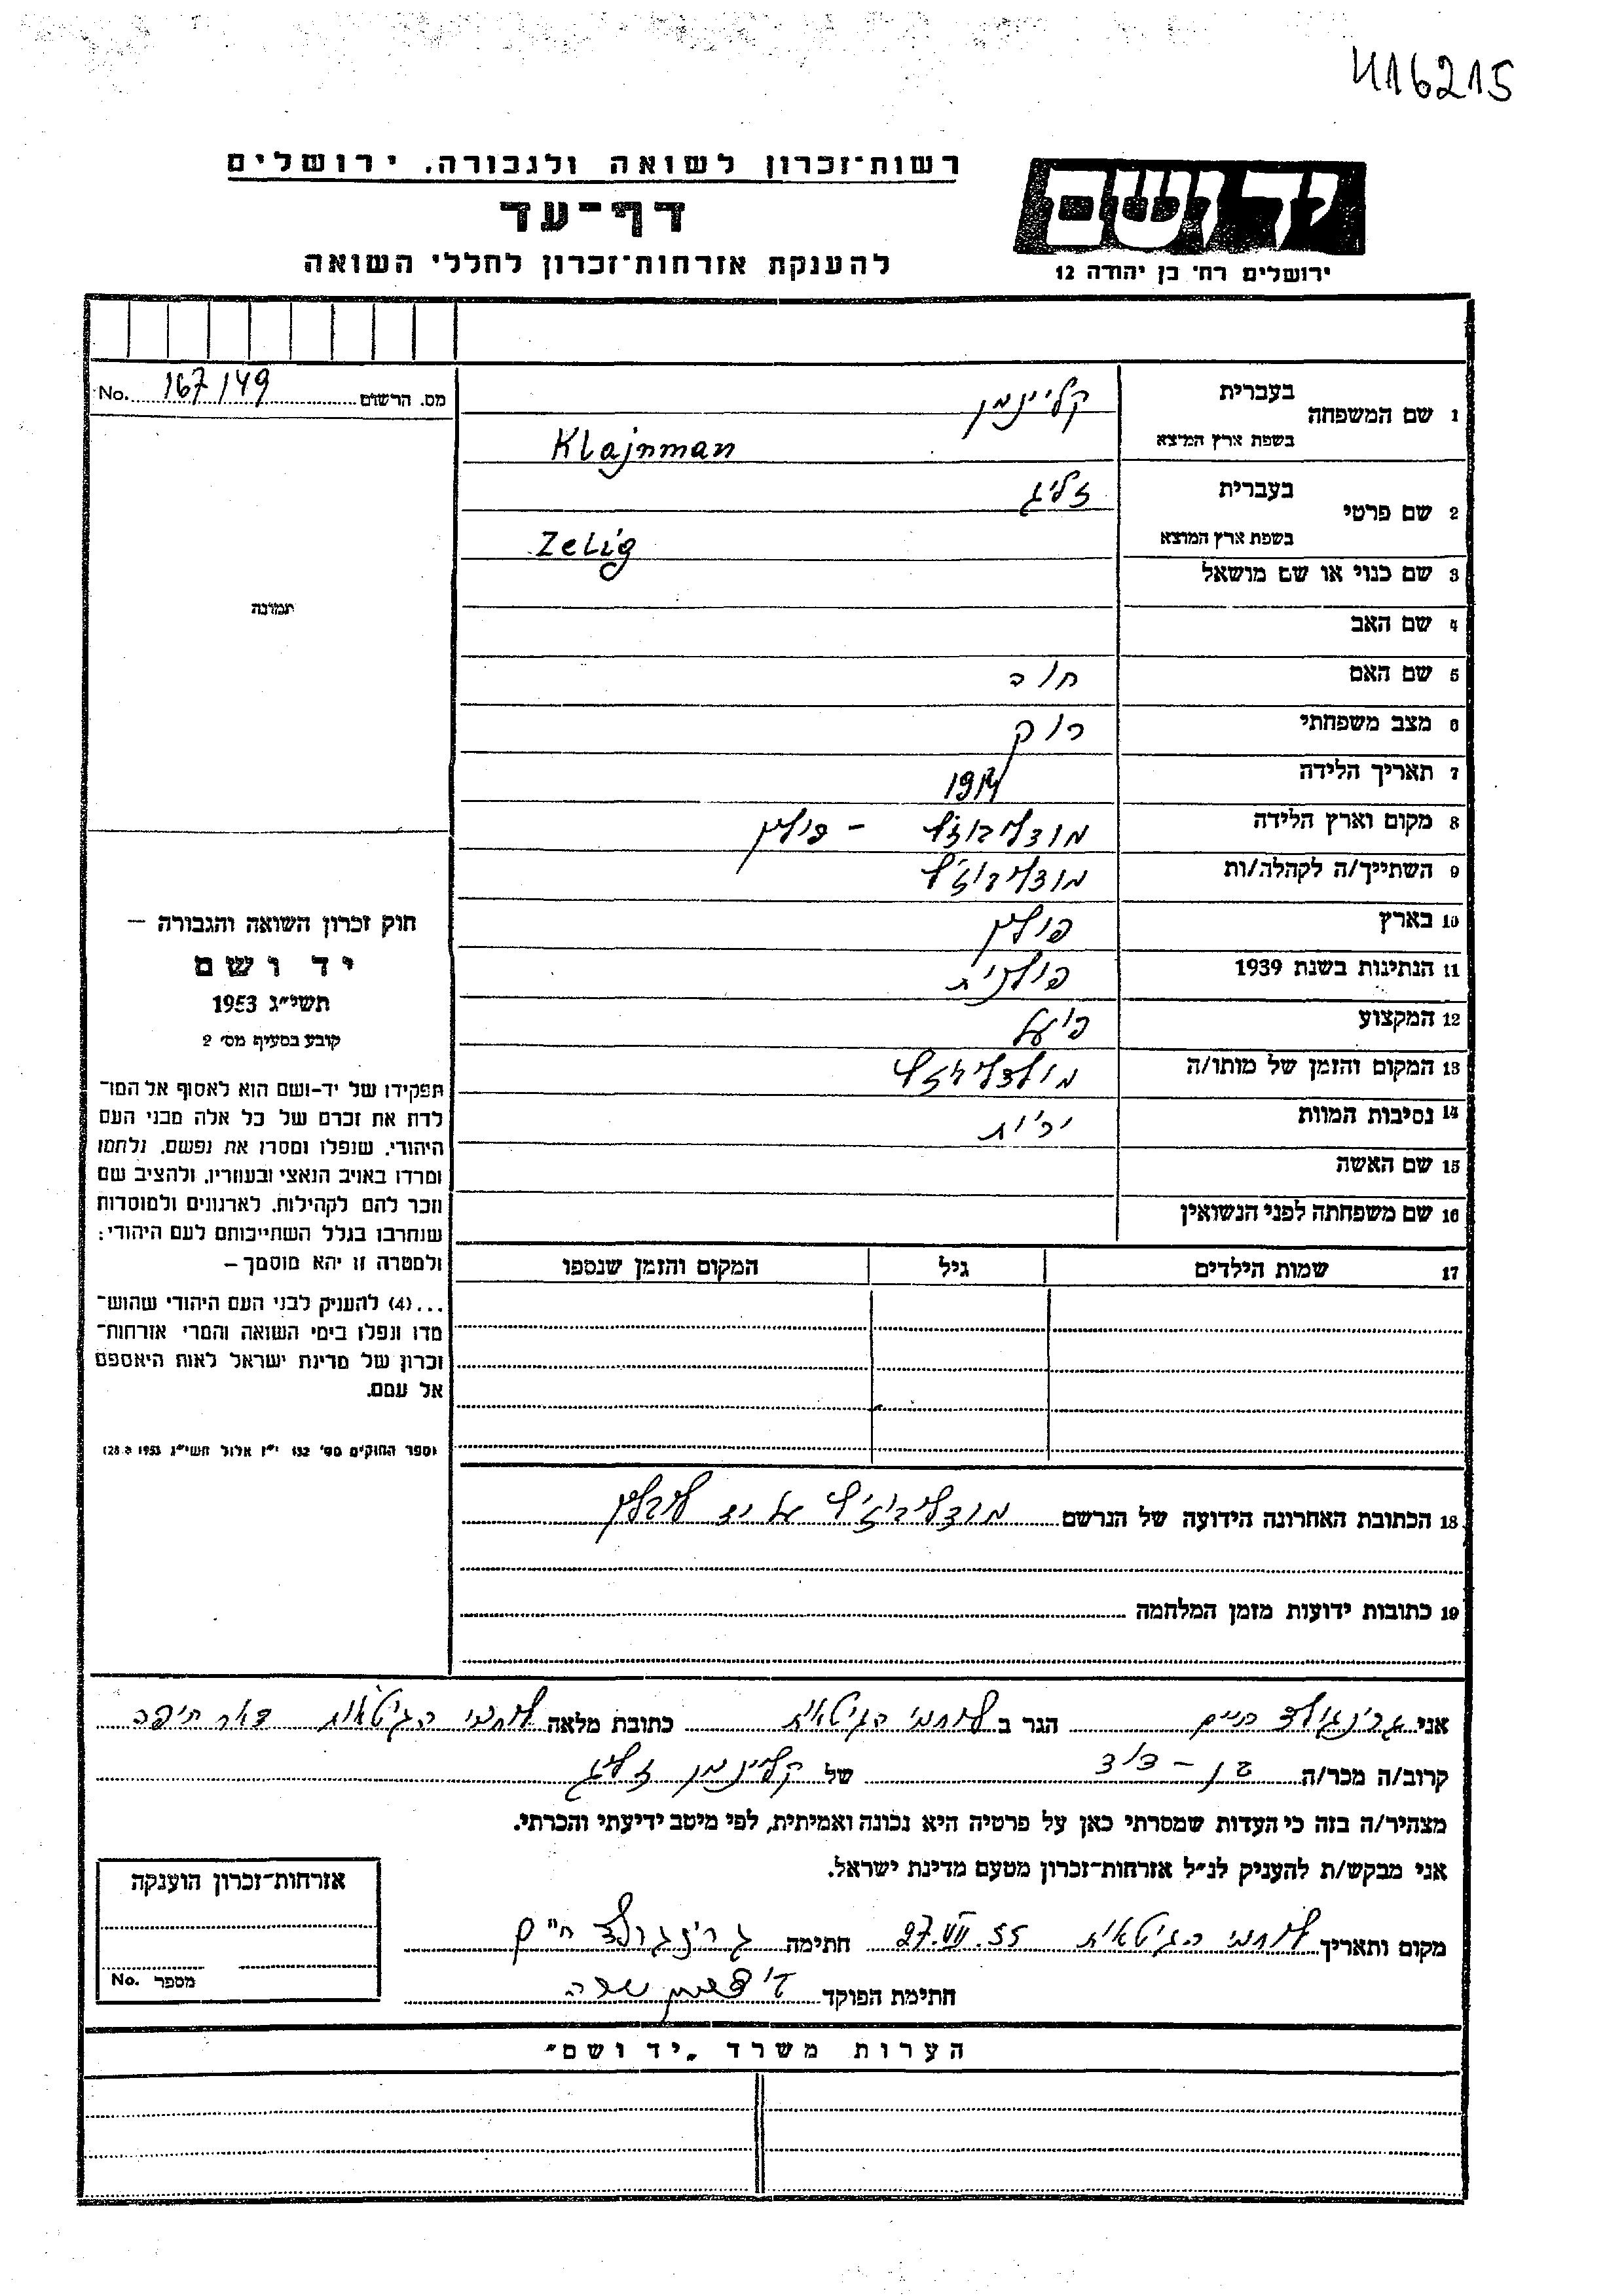 416215
רשות־זכרון לשואה ולגבורה, ירושלים
דף־עד
להענקת אזרחות־זכרון לחללי השואה
יד ושם
ירושלים רח' בן יהודה 12
מס. הרשום 167/149 No.
תמונה
1 שם המשפחה בעברית קליינמן
בשפת ארץ המוצא Klajnman
2 שם פרטי בעברית זליג
בשפת ארץ המוצא Zelig
3 שם כנוי או שם מושאל
4 שם האב
5 שם האם חוה
6 מצב משפחתי רוק
7 תאריך הלידה
8 מקום וארץ הלידה – פולין
9 השתייך/ה לקהלה/ות
10 בארץ פולין
11 הנתינות בשנת 1939 פולנית
12 המקצוע פועל
13 המקום והזמן של מותו/ה
14 נסיבות המוות יריות
15 שם האשה
16 שם משפחתה לפני הנשואין
17 שמות הילדים גיל המקום והזמן שנספו
חוק זכרון השואה והגבורה –
יד ושם
תשי"ג 1953
קובע בסעיף מס' 2
תפקידו של יד-ושם הוא לאסוף אל המו־
לדת את זכרם של כל אלה מבני העם
היהודי, שנפלו ומסרו את נפשם, נלחמו
ומרדו באויב הנאצי ובעוזריו, ולהציב שם
וזכר להם לקהילות, לארגונים ולמוסדות
שנחרבו בגלל השתייכותם לעם היהודי:
ולמטרה זו יהא מוסמך –
...(4) להעניק לבני העם היהודי שהוש־
מדו ונפלו בימי השואה והמרי אזרחות־
זכרון של מדינת ישראל לאות היאספם
אל עמם.
(ספר החוקים מס' 132 י"ז אלול תשי"ג 28.8.1953)
18 הכתובת האחרונה הידועה של הנרשם על יד לובלין
19 כתובות ידועות מזמן המלחמה
אני גרינגולד חיים הגר ב לוחמי הגיטאות כתובת מלאה לוחמי הגיטאות דאר חיפה
קרוב/ה מכר/ה בן - דוד של קליינמן זליג
מצהיר/ה בזה כי העדות שמסרתי כאן על פרטיה היא נכונה ואמיתית, לפי מיטב ידיעתי והכרתי.
אני מבקש/ת להעניק לנ"ל אזרחות־זכרון מטעם מדינת ישראל.
מקום ותאריך לוחמי הגיטאות 27.VII.55 חתימה גרינגולד חיים
חתימת הפוקד שרה
אזרחות־זכרון הוענקה
מספר No.
הערות משרד „יד ושם"